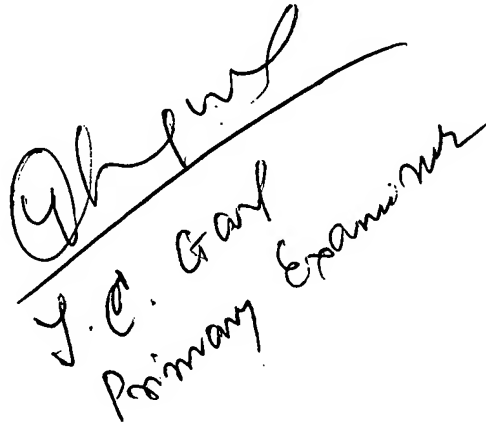 J. C. Garg
Primary Examiner